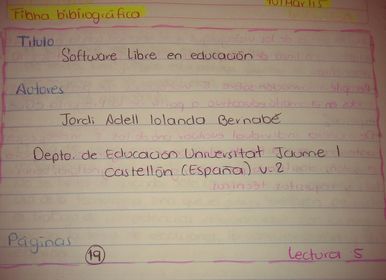 Fibha bibliográfica
Titulo
Software Libre en educación
Autores
Jordi Adell Iolanda Bernabé
Depto. de Educación Universitat Jaume I
Castellón (España) v.2
Páginas
19
Lectura 5